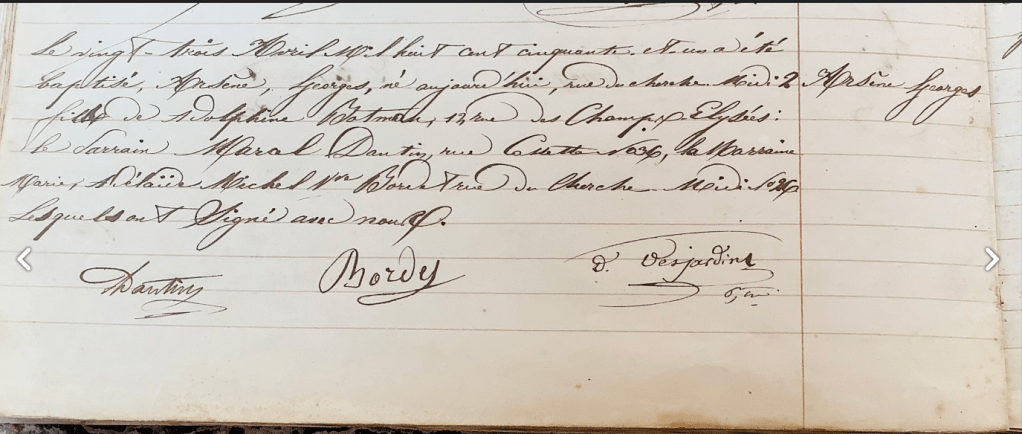 Le vingt-trois Avril Mil huit cent cinquante et un a été
baptisé, Arsène, Georges, né aujourd'hui, rue du cherche Midi 2 Arsène Georges
fille de Adolphine 12 rue des Champs Elysées:
le Parrain Maral Dantin, rue Cassette No 36, la Marraine
Marie, Adélaïde Michel Vve rue du Cherche Midi No
Lesquels ont Signé avec nous.
Dantin Bordy d. Desjardins